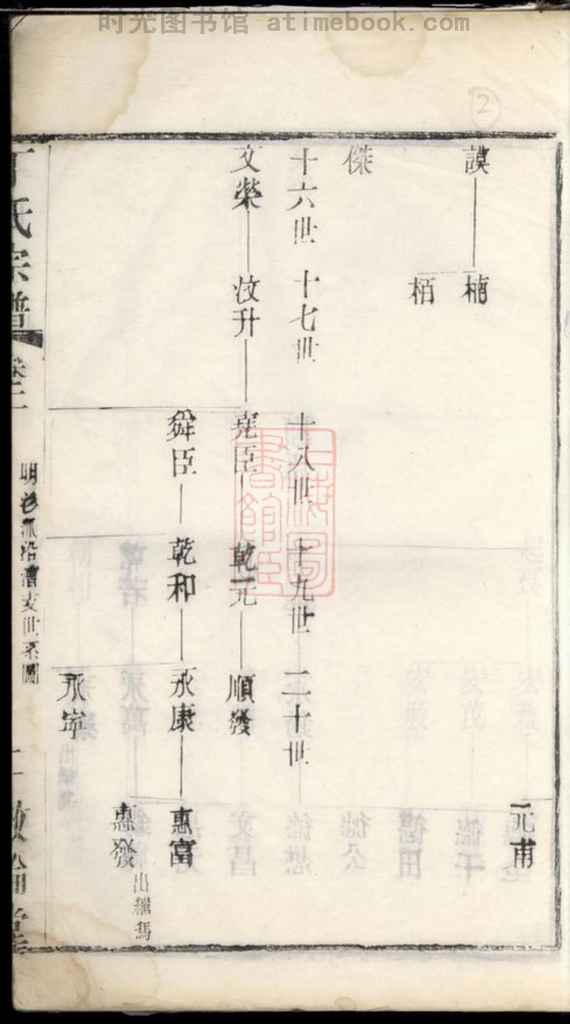 时光图书馆 atimebook.com
2
元甫
謨 楠
栢
傑
十六世 十七世 十八世 十九世 二十世
文榮 汶升 堯臣 乾元 順發
舜臣 乾和 永康 惠富
惠發 出繼馬
永寧
丁氏宗譜 卷二 明邑派沿漕支世系圖